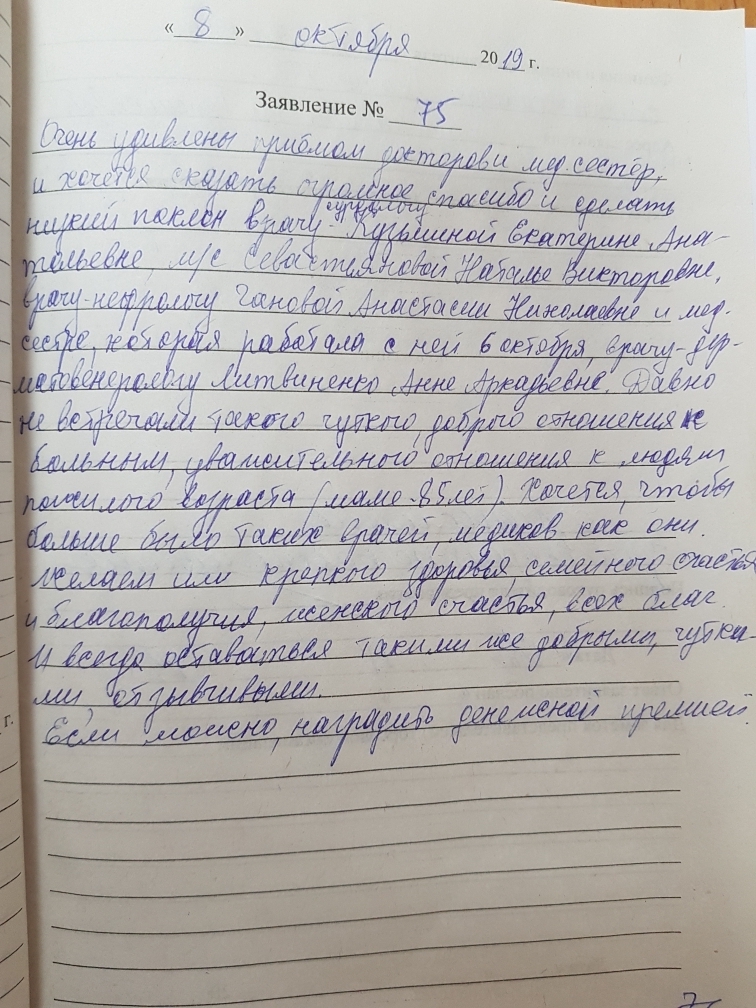 « 8 » октября 2019 г.
Заявление № 75
Очень удивлены приёмом докторов и мед. сестёр,
и хочется сказать огромное спасибо и сделать
низкий поклон врачу- Кузьминой Екатерине Ана-
тольевне, м/с Севастьяновой Наталье Викторовне,
врачу-нефрологу Гановой Анастасии Николаевне и мед.
сестре, которая работала с ней 6 октября, врачу-дер-
матовенерологу Литвиненко Анне Аркадьевне. Давно
не встречали такого чуткого, доброго отношения к
больным, уважительного отношения к людям
пожилого возраста (маме-85лет). Хочется, чтобы
больше было таких врачей, медиков как они.
Желаем им крепкого здоровья, семейного счастья
и благополучия, женского счастья, всех благ.
И всегда оставаться такими же добрыми, чутки-
ми, отзывчивыми.
Если можно, наградить денежной премией.
г.